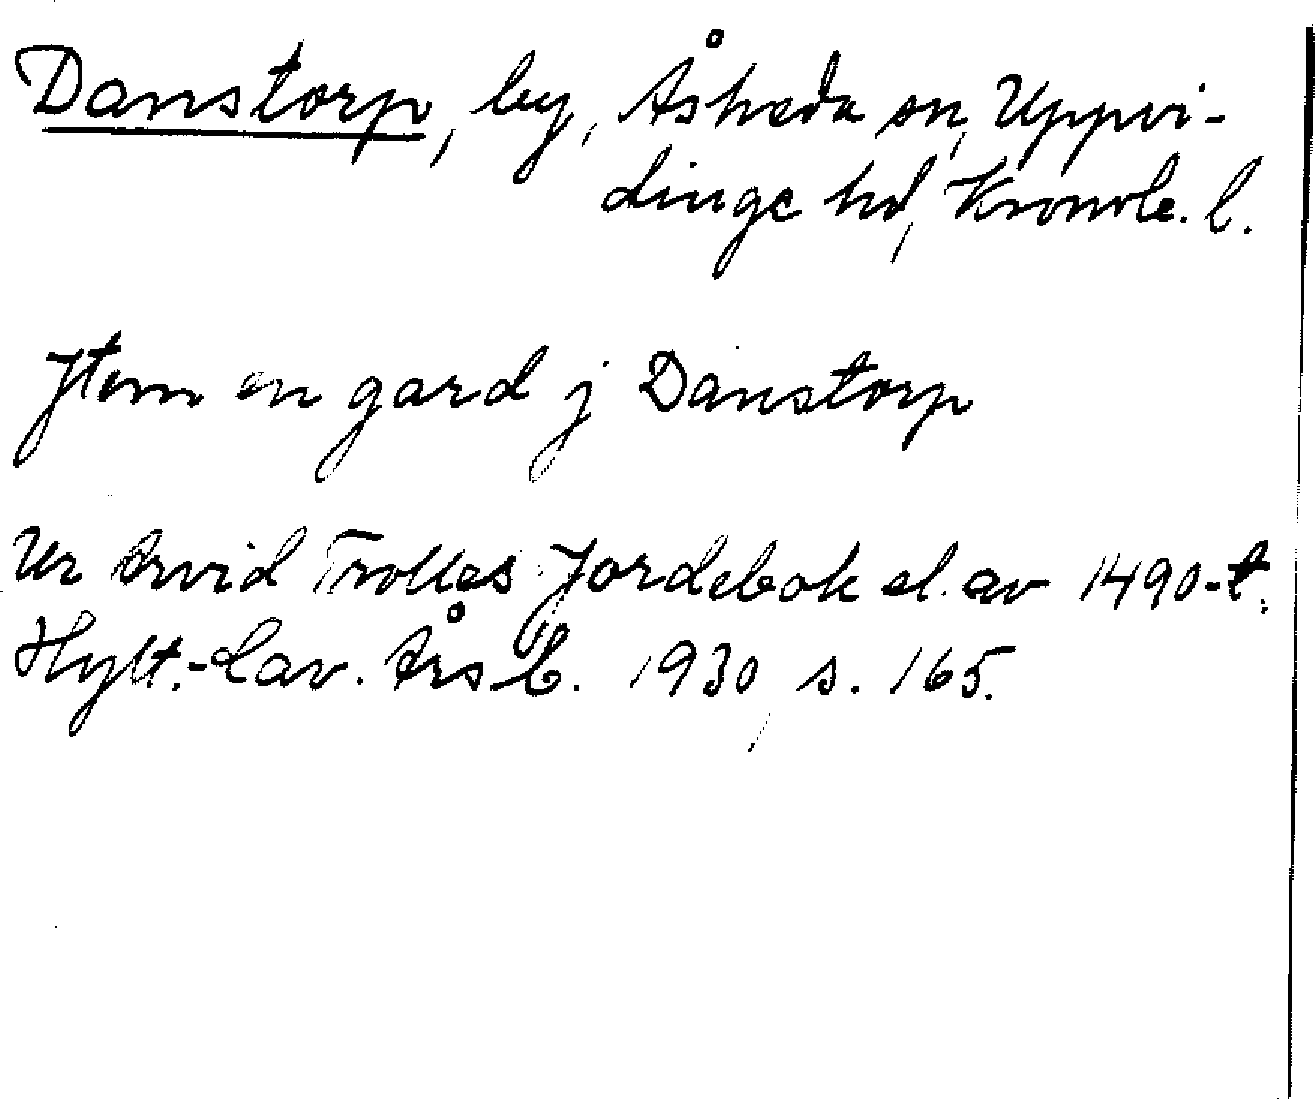 Danstorp, by, Åsheda sn, Uppvi-
dinge hd, Kronob. l.
Jtem en gard j Danstorp
Ur Arvid Trolles Jordebok el. av 1490-t.
Hylt.-Cav. Årsb. 1930, s. 165.